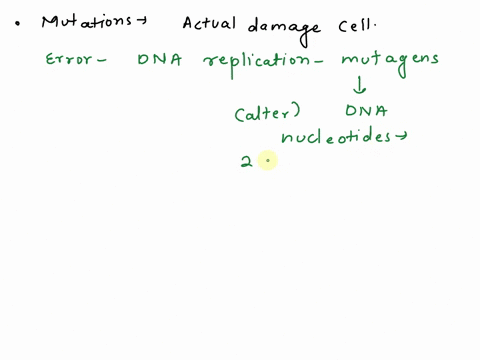 • Mutations → Actual damage cell.
Error - DNA replication - mutagens
↓
(alter) DNA
nucleotides →
2